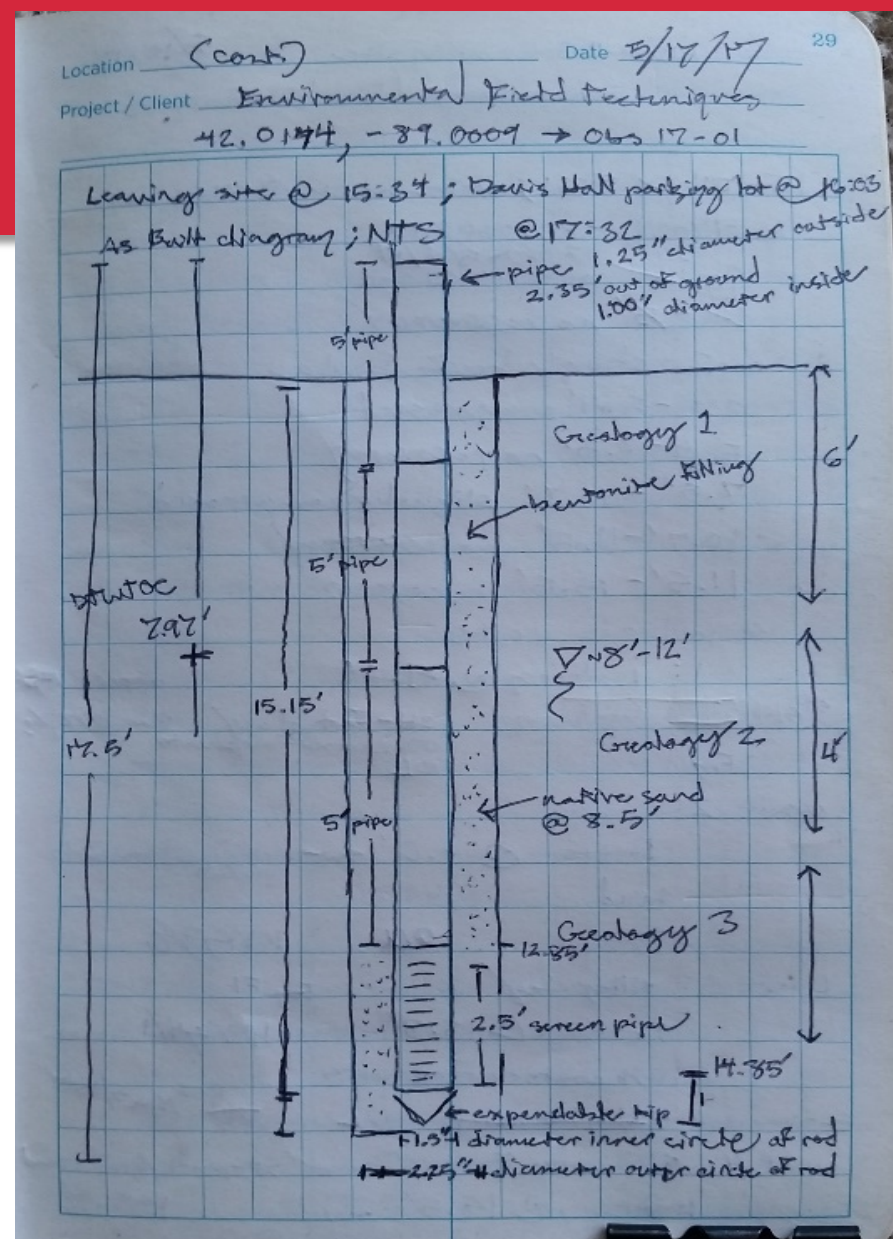 29
Location (cont.) Date 5/17/17
Project / Client Environmental Field Techniques
42.0174, -89.0009 → Obs 17-01
Leaving site @ 15:34 ; Davis Hall parking lot @ 16:03
As Built diagram ; NTS @ 17:32
1.25" diameter outside
pipe
2.35' out of ground
1.00" diameter inside
5' pipe
Geology 1
6'
bentonite filling
5' pipe
DTWTOC
7.97'
▽ ~8'-12'
15.15'
17.5'
Geology 2
4'
native sand
@ 8.5'
5' pipe
Geology 3
12.35'
2.5' screen pipe
14.85'
expendable tip
1.5" diameter inner circle of rod
2.25" diameter outer circle of rod